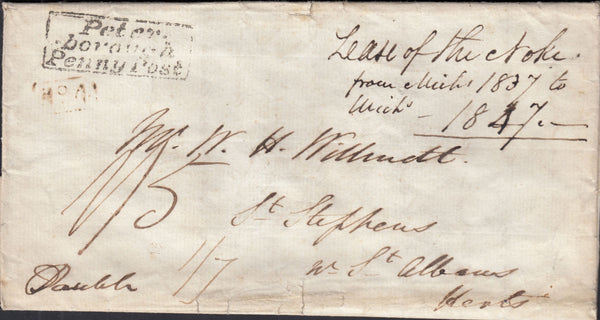 Peter-
borough
Penny Post
No A
Lease of the Noke
from Michs 1837 to
Michs
1847.
Mr. W. H. Willmott.
/5
St Stephens
1/7
nr St Albans
Double
Herts